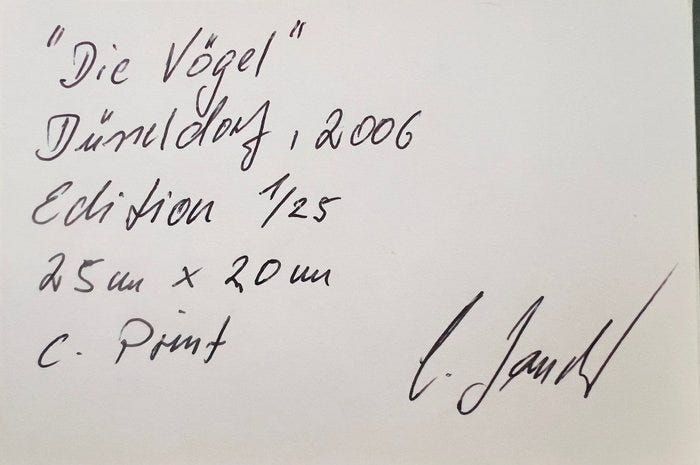 "Die Vögel"
Düsseldorf, 2006
Edition 1/25
25cm x 20cm
C. Print